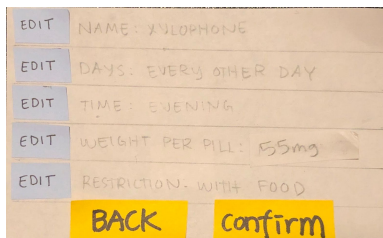 EDIT NAME: XYLOPHONE
EDIT DAYS. EVERY OTHER DAY
EDIT TIME: EVENING
EDIT WEIGHT PER PILL: 55mg
EDIT RESTRICTION. WITH FOOD
BACK Confirm